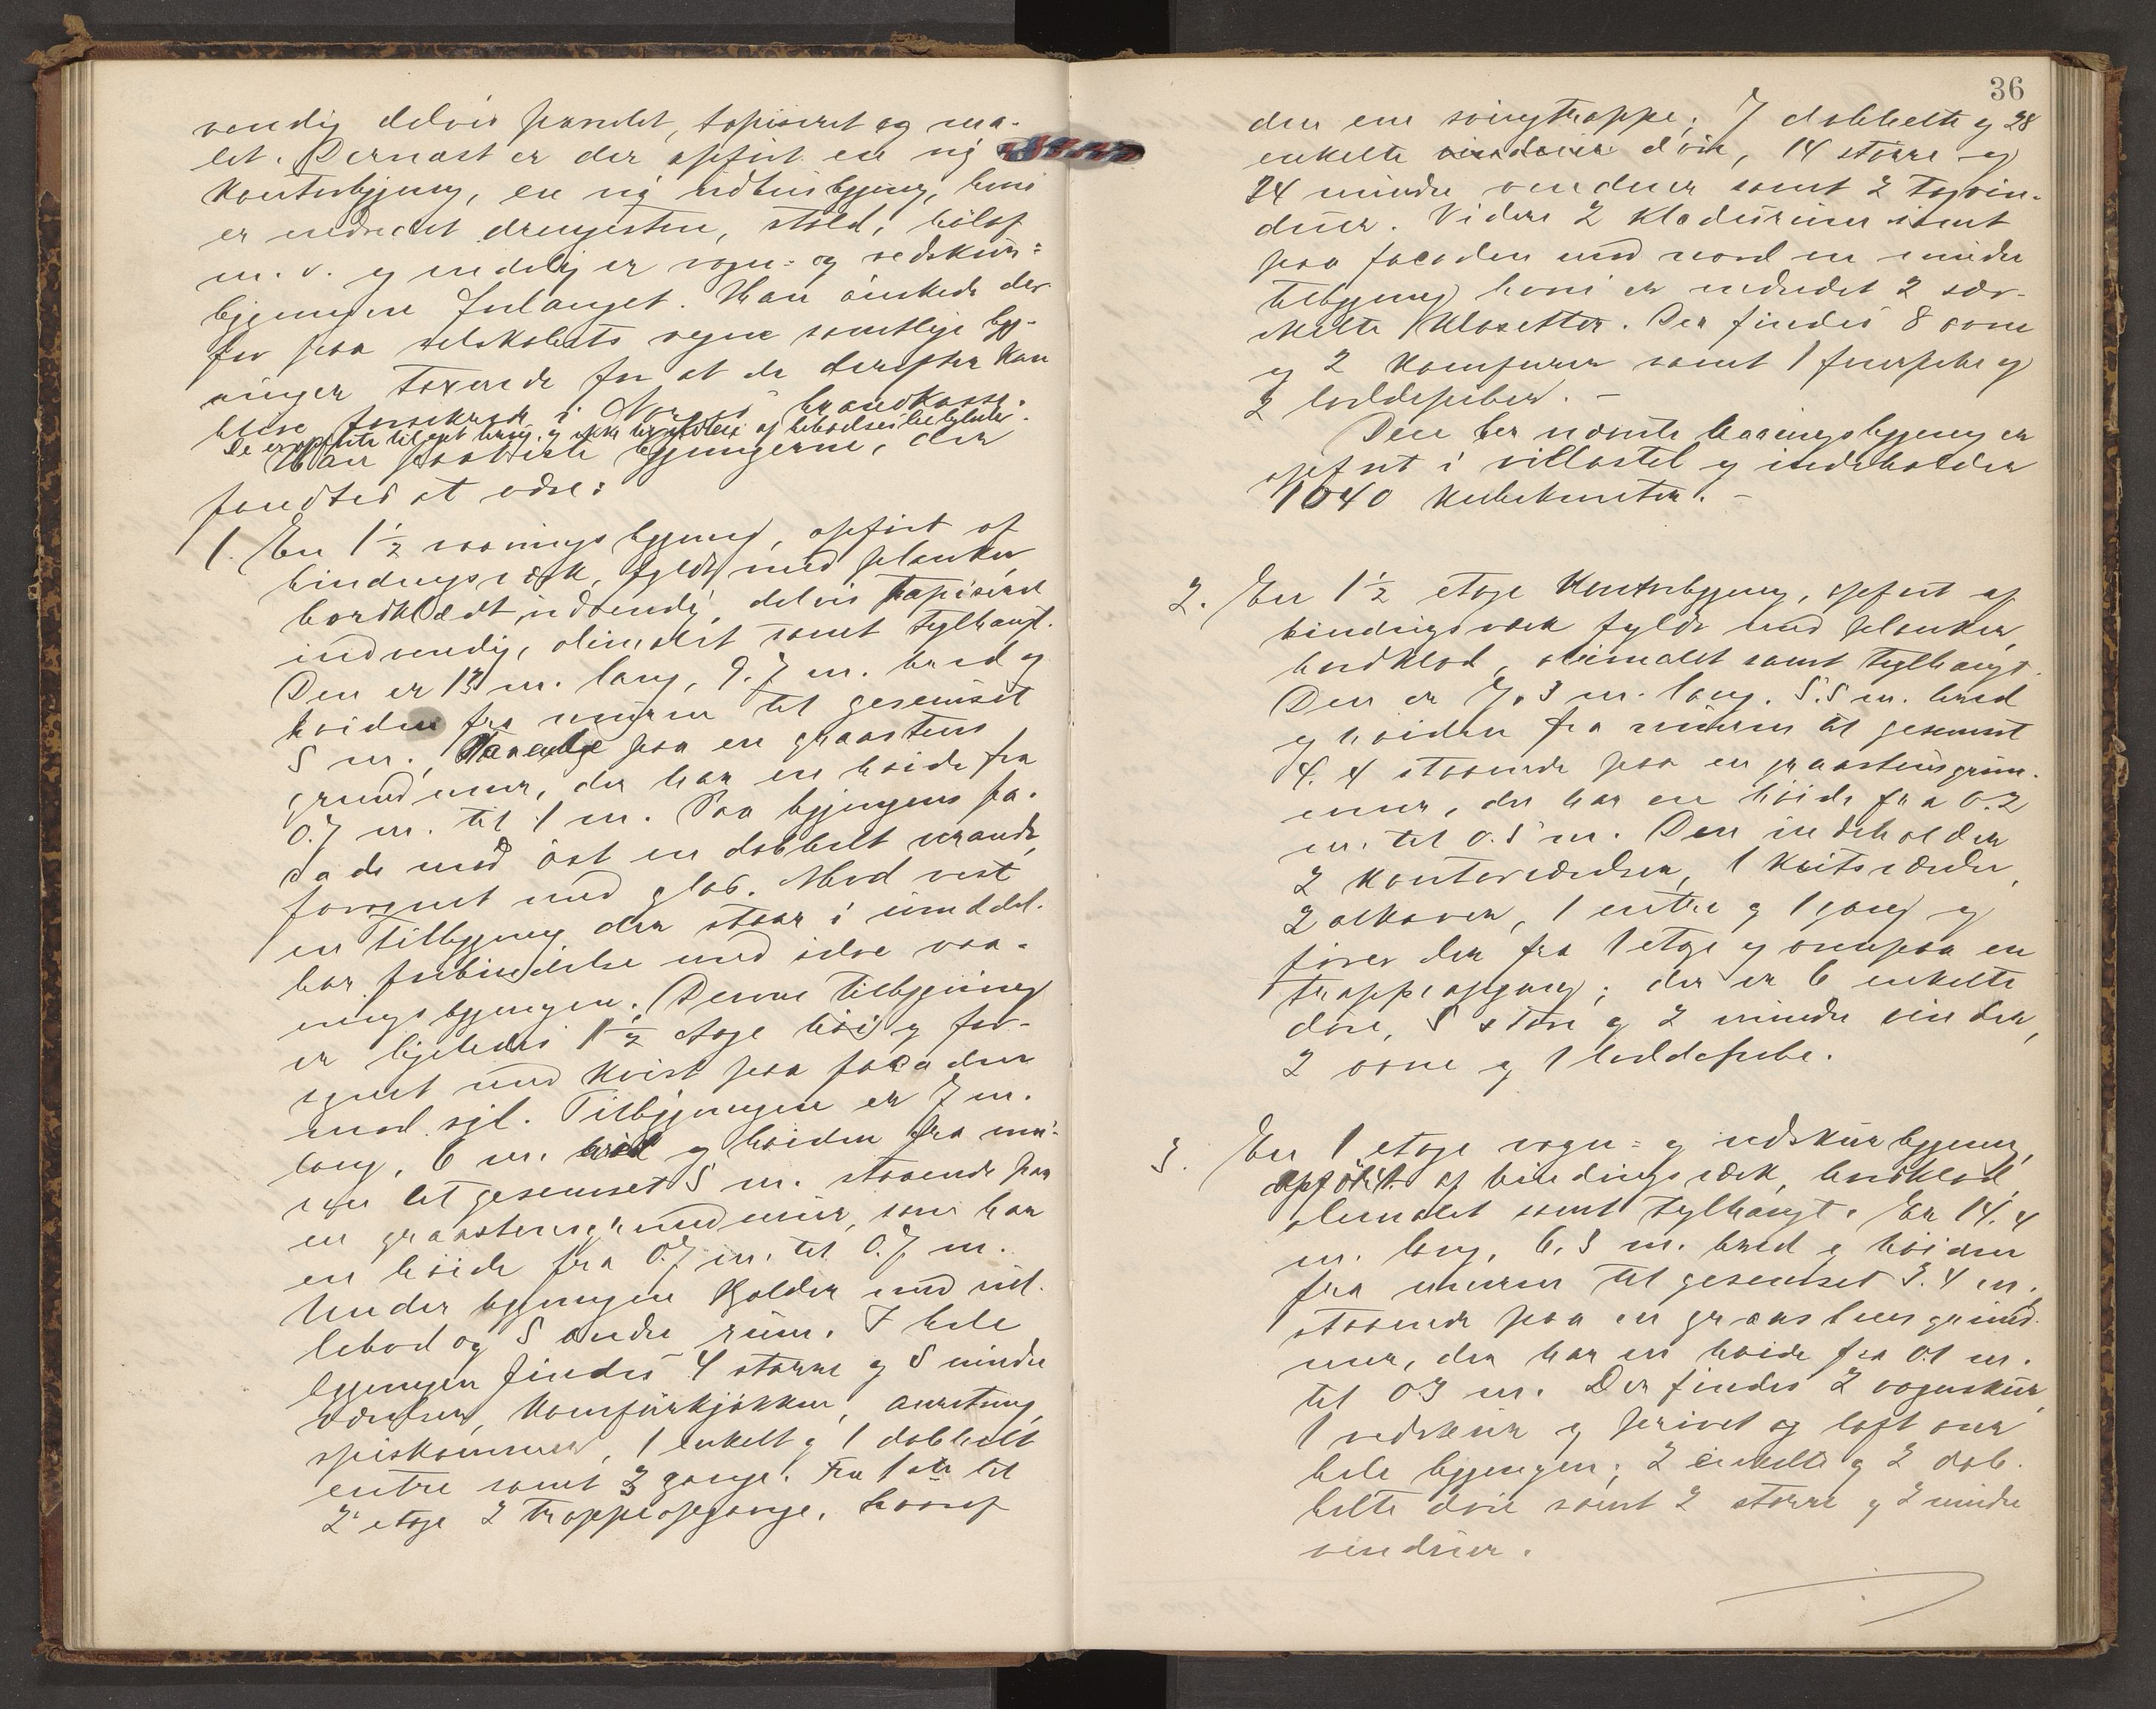 vendig delvis panelet, tapiseret og ma-
let. Dernæst er der opført en ny
kontorbygning, en ny udhusbygning, hvori
er indredet drengestue, stald, hølaf
m. v. og endelig er vogn- og vedskur-
bygningen forlænget. Han ønskede der-
for paa selskabets vegne samtlige byg-
ninger taxerede for at de derefter kan
blive forsikrede i Norges brandkasse.
De er opførte til eget brug og ikke
Han paaviste bygningerne, der
fandtes at være:
1. En 1½ vaaningsbygning, opført af
bindingsværk, fyldt med planker,
bordklædt udvendig, delvis tapiseret
indvendig, oliemalet samt teglhængt.
Den er 13 m. lang, 9.7 m. bred og
høiden fra muren til gesemset
5 m., staaende paa en graastens
grundmur, der har en høide fra
0.7 m. til 1 m. Paa bygningens fa-
cade mod øst en dobbelt veranda,
forsynet med glas. Mod vest
en tilbygning der staar i umiddel-
bar forbindelse med selve vaa-
ningsbygningen. Denne tilbygning
er ligeledes 1½ etage høi og for-
synet med kvist paa facaden
mod syd. Tilbygningen er 7 m.
lang, 6 m. bred og høiden fra mu-
ren til gesemset 5 m. staaende paa
en graastensgrundmur, som har
en høide fra 0.7 m. til 0.7 m.
Under bygningen kjelder med rul-
lebod og 5 andre rum. I hele
bygningen findes 4 større og 5 mindre
værelser, komfurkjøkken, anretning,
spiskammer, 1 enkelt og 1 dobbelt
entre samt 3 gange. Fra 1ste til
2 etage 2 trappeopgange, hvoraf
36
den ene svingtrappe; 7 dobbelte og 28
enkelte døre, 14 større og
24 mindre vinduer samt 2 tagvin-
duer. Videre 2 klædesrum samt
paa facaden mod nord en mindre
tilbygning hvori er indredet 2 sær-
skilte klosetter. Der findes 8 ovne
og 2 komfurer samt 1 feierpibe og
2 loddepiber. -
Den her nævnte vaaningsbygning er
opført i villastil og indeholder
1040 kubikmeter. -
2. En 1½ etage kontorbygning, opført af
bindingsværk fyldt med planker,
bordklæd, oliemalet samt teglhængt.
Den er 7.3 m. lang. 5.5 m. bred
og høiden fra muren til gesemset
4.4 staaende paa en graastensgrun-
mur, der har en høide fra 0.2
m. til 0.5 m. Den indeholder
2 kontorværelser, 1 værelse,
2 alkover, 1 entre og 1 gang og
fører der fra 1 etage og ovenpaa en
trappeopgang; der er 6 enkelte
døre, 5 større og 2 mindre vinduer,
2 ovne og 1 loddepibe.
3. En 1 etage vogn- og vedskurbygning,
opført af bindingsværk, bordklæd,
oliemalet samt teglhængt. Er 14.4
m. lang, 6.3 m. bred og høiden
fra muren til gesemset 3.4 m.,
staaende paa en graastensgrund-
mur, der har en høide fra 0.1 m.
til 0.3 m. Der findes 2 vognskur,
1 vedskur og privet og loft over
hele bygningen; 2 enkelte og 2 dob-
belte døre samt 2 større og 2 mindre
vinduer.